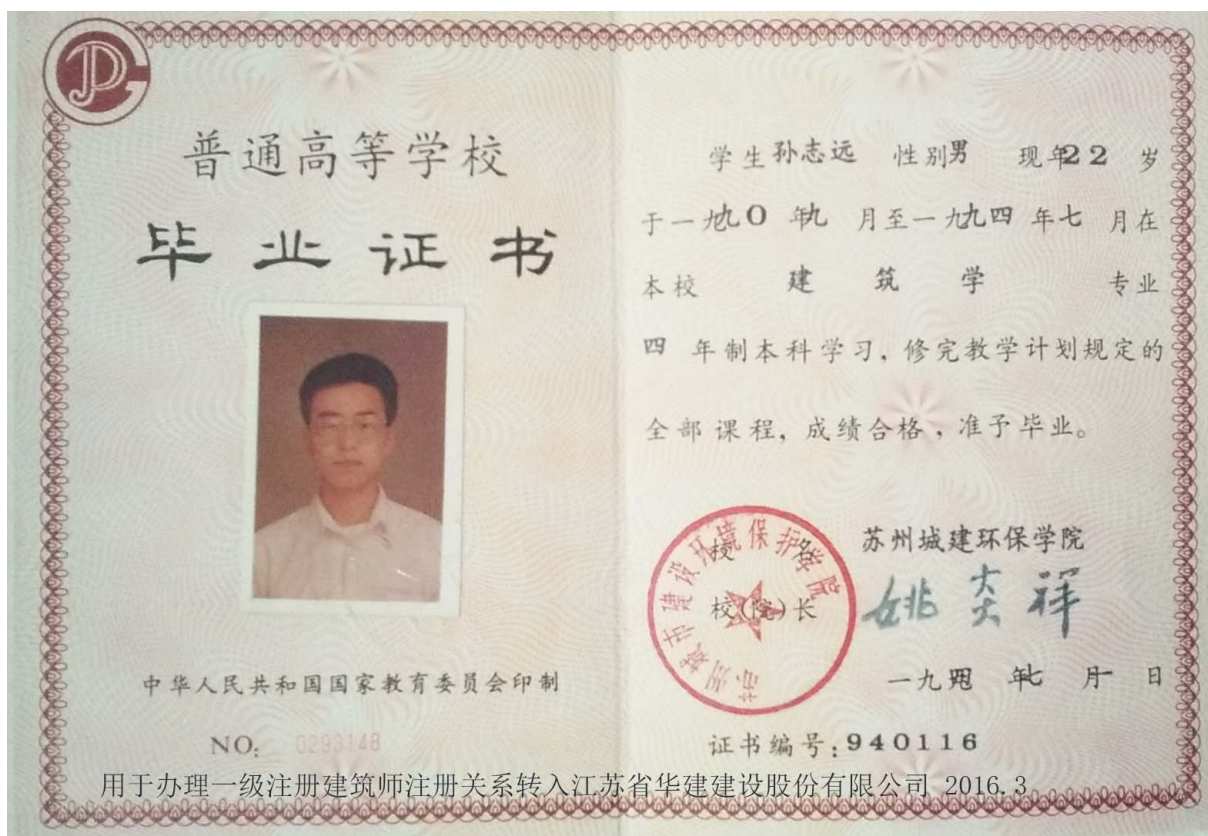 普通高等学校
毕业证书
中华人民共和国国家教育委员会印制
NO: 0293148
学生 孙志远 性别 男 现年 22 岁
于一九九0年九月至一九九四年七月在
本校 建筑学 专业
四年制本科学习,修完教学计划规定的
全部课程,成绩合格,准予毕业。
校名 苏州城建环保学院
校(院)长 姚炎祥
苏州城市建设环境保护学院
一九九四年七月 日
证书编号:940116
用于办理一级注册建筑师注册关系转入江苏省华建建设股份有限公司 2016.3